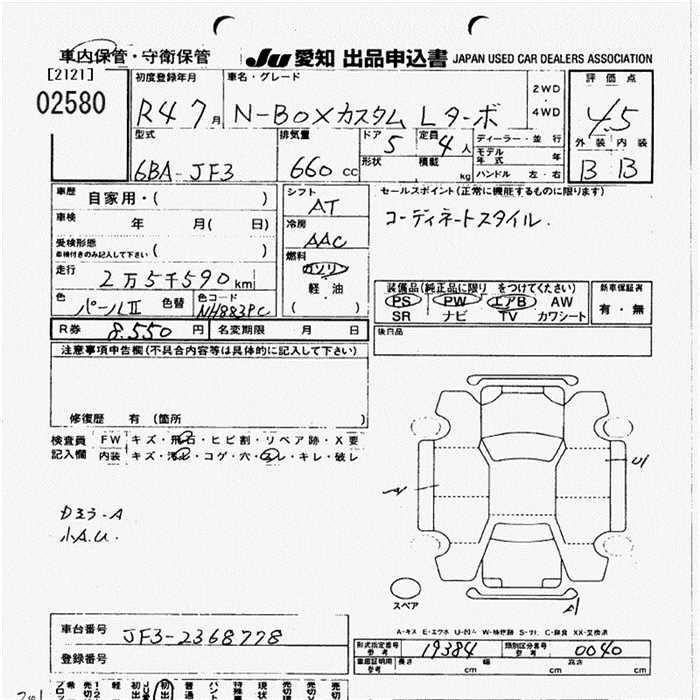 車内保管・守衛保管 JU 愛知 出品申込書 JAPAN USED CAR DEALERS ASSOCIATION
[2121]
02580
初度登録年月 R4 7月
車名・グレード N-BOXカスタム Lターボ
2WD・4WD
評価点 4.5
外装 内装
B B
型式 6BA-JF3
排気量 660 cc
ドア 5 定員 4人
形状 積載 kg
ディーラー・並行
モデル年式 年
ハンドル 左・右
車歴 自家用・( )
車検 年 月( 日)
受検形態
車検付きのみ記入して下さい ( )
走行 2万5千590km
色 パールII 色替 色コード NH883PC
シフト AT
冷房 AAC
燃料 ガソリン
軽・油
( )
セールスポイント(正常に機能するものに限ります)
コーディネートスタイル.
装備品(純正品に限り をつけてください)
PS PW エアB AW
SR ナビ TV カワシート
新車保証書
有・無
後日品
R券 8.550 円 名変期限 月 日
注意事項申告欄(不具合内容等は具体的に記入して下さい)
修復歴 有 (箇所 )
検査員 FW キズ・飛石・ヒビ割・リペア跡・X要
記入欄 内装 キズ・汚れ・コゲ・穴・スレ・キレ・破レ
小A.U.
スペア
車台番号 JF3-2368778
登録番号
型式指定番号 参考 19384 類別区分番号 参考 0040
車庫証明用 参考 長さ cm 幅 cm 高さ cm